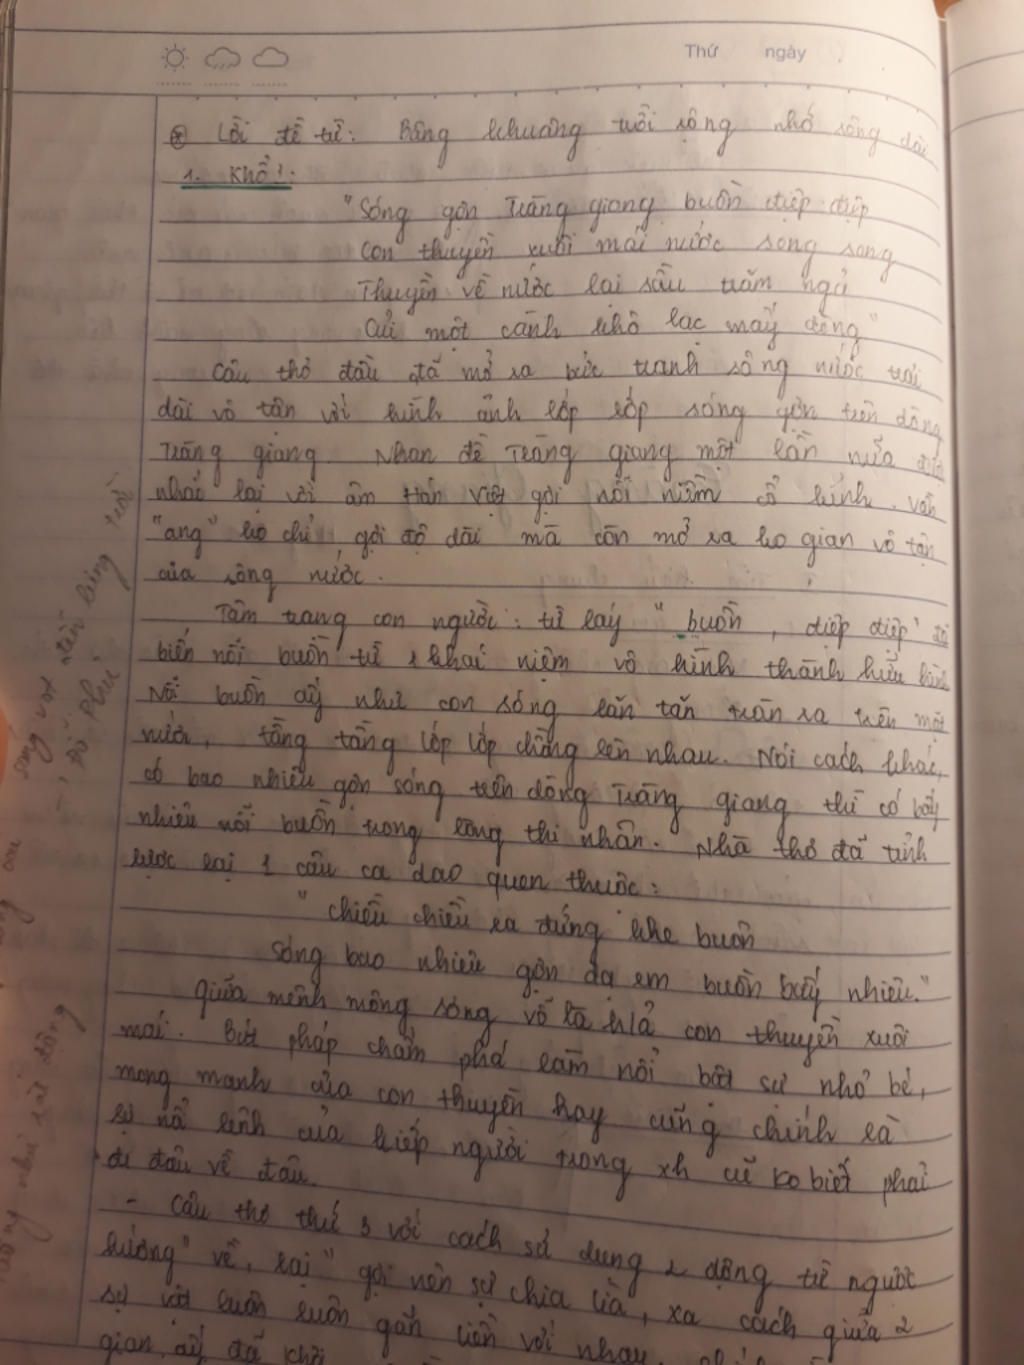 Thứ ngày
⊛ Lời đề từ: Bâng khuâng trời rộng nhớ sông dài
1. Khổ 1:
"Sóng gợn Tràng giang buồn điệp điệp
Con thuyền xuôi mái nước song song
Thuyền về nước lại sầu trăm ngả
Củi một cành khô lạc mấy dòng"
Câu thơ đầu đã mở ra bức tranh sông nước trải
dài vô tận với hình ảnh lớp lớp sóng gợn trên dòng
Tràng giang. Nhan đề Tràng giang một lần nữa được
nhắc lại với âm Hán Việt gợi nỗi niềm cổ kính. Vần
"ang" ko chỉ gợi độ dài mà còn mở ra ko gian vô tận
của sông nước.
Tâm trạng con người: từ láy "buồn, điệp điệp" đã
biến nỗi buồn từ 1 khái niệm vô hình thành hữu hình
Nỗi buồn ấy như con sóng lăn tăn tràn ra trên mặt
nước, tầng tầng lớp lớp chồng lên nhau. Nói cách khác,
có bao nhiêu gợn sóng trên dòng Tràng giang thì có bấy
nhiêu nỗi buồn trong lòng thi nhân. Nhà thơ đã tỉnh
lược lại 1 câu ca dao quen thuộc:
"Chiều chiều ra đứng khe buồn
Sóng bao nhiêu gợn dạ em buồn bấy nhiêu."
Giữa mênh mông sóng vỗ là h/ả con thuyền xuôi
mái. Bút pháp chấm phá làm nổi bật sự nhỏ bé,
mong manh của con thuyền hay cũng chính là
sự nổi lênh của kiếp người trong xh cũ ko biết phải
đi đâu về đâu.
- Câu thơ thứ 3 với cách sử dụng 2 động từ ngược
hướng "về, lại" gợi nên sự chia lìa, xa cách giữa 2
sự vật luôn luôn gắn liền với nhau.
gian ấy đã khơi